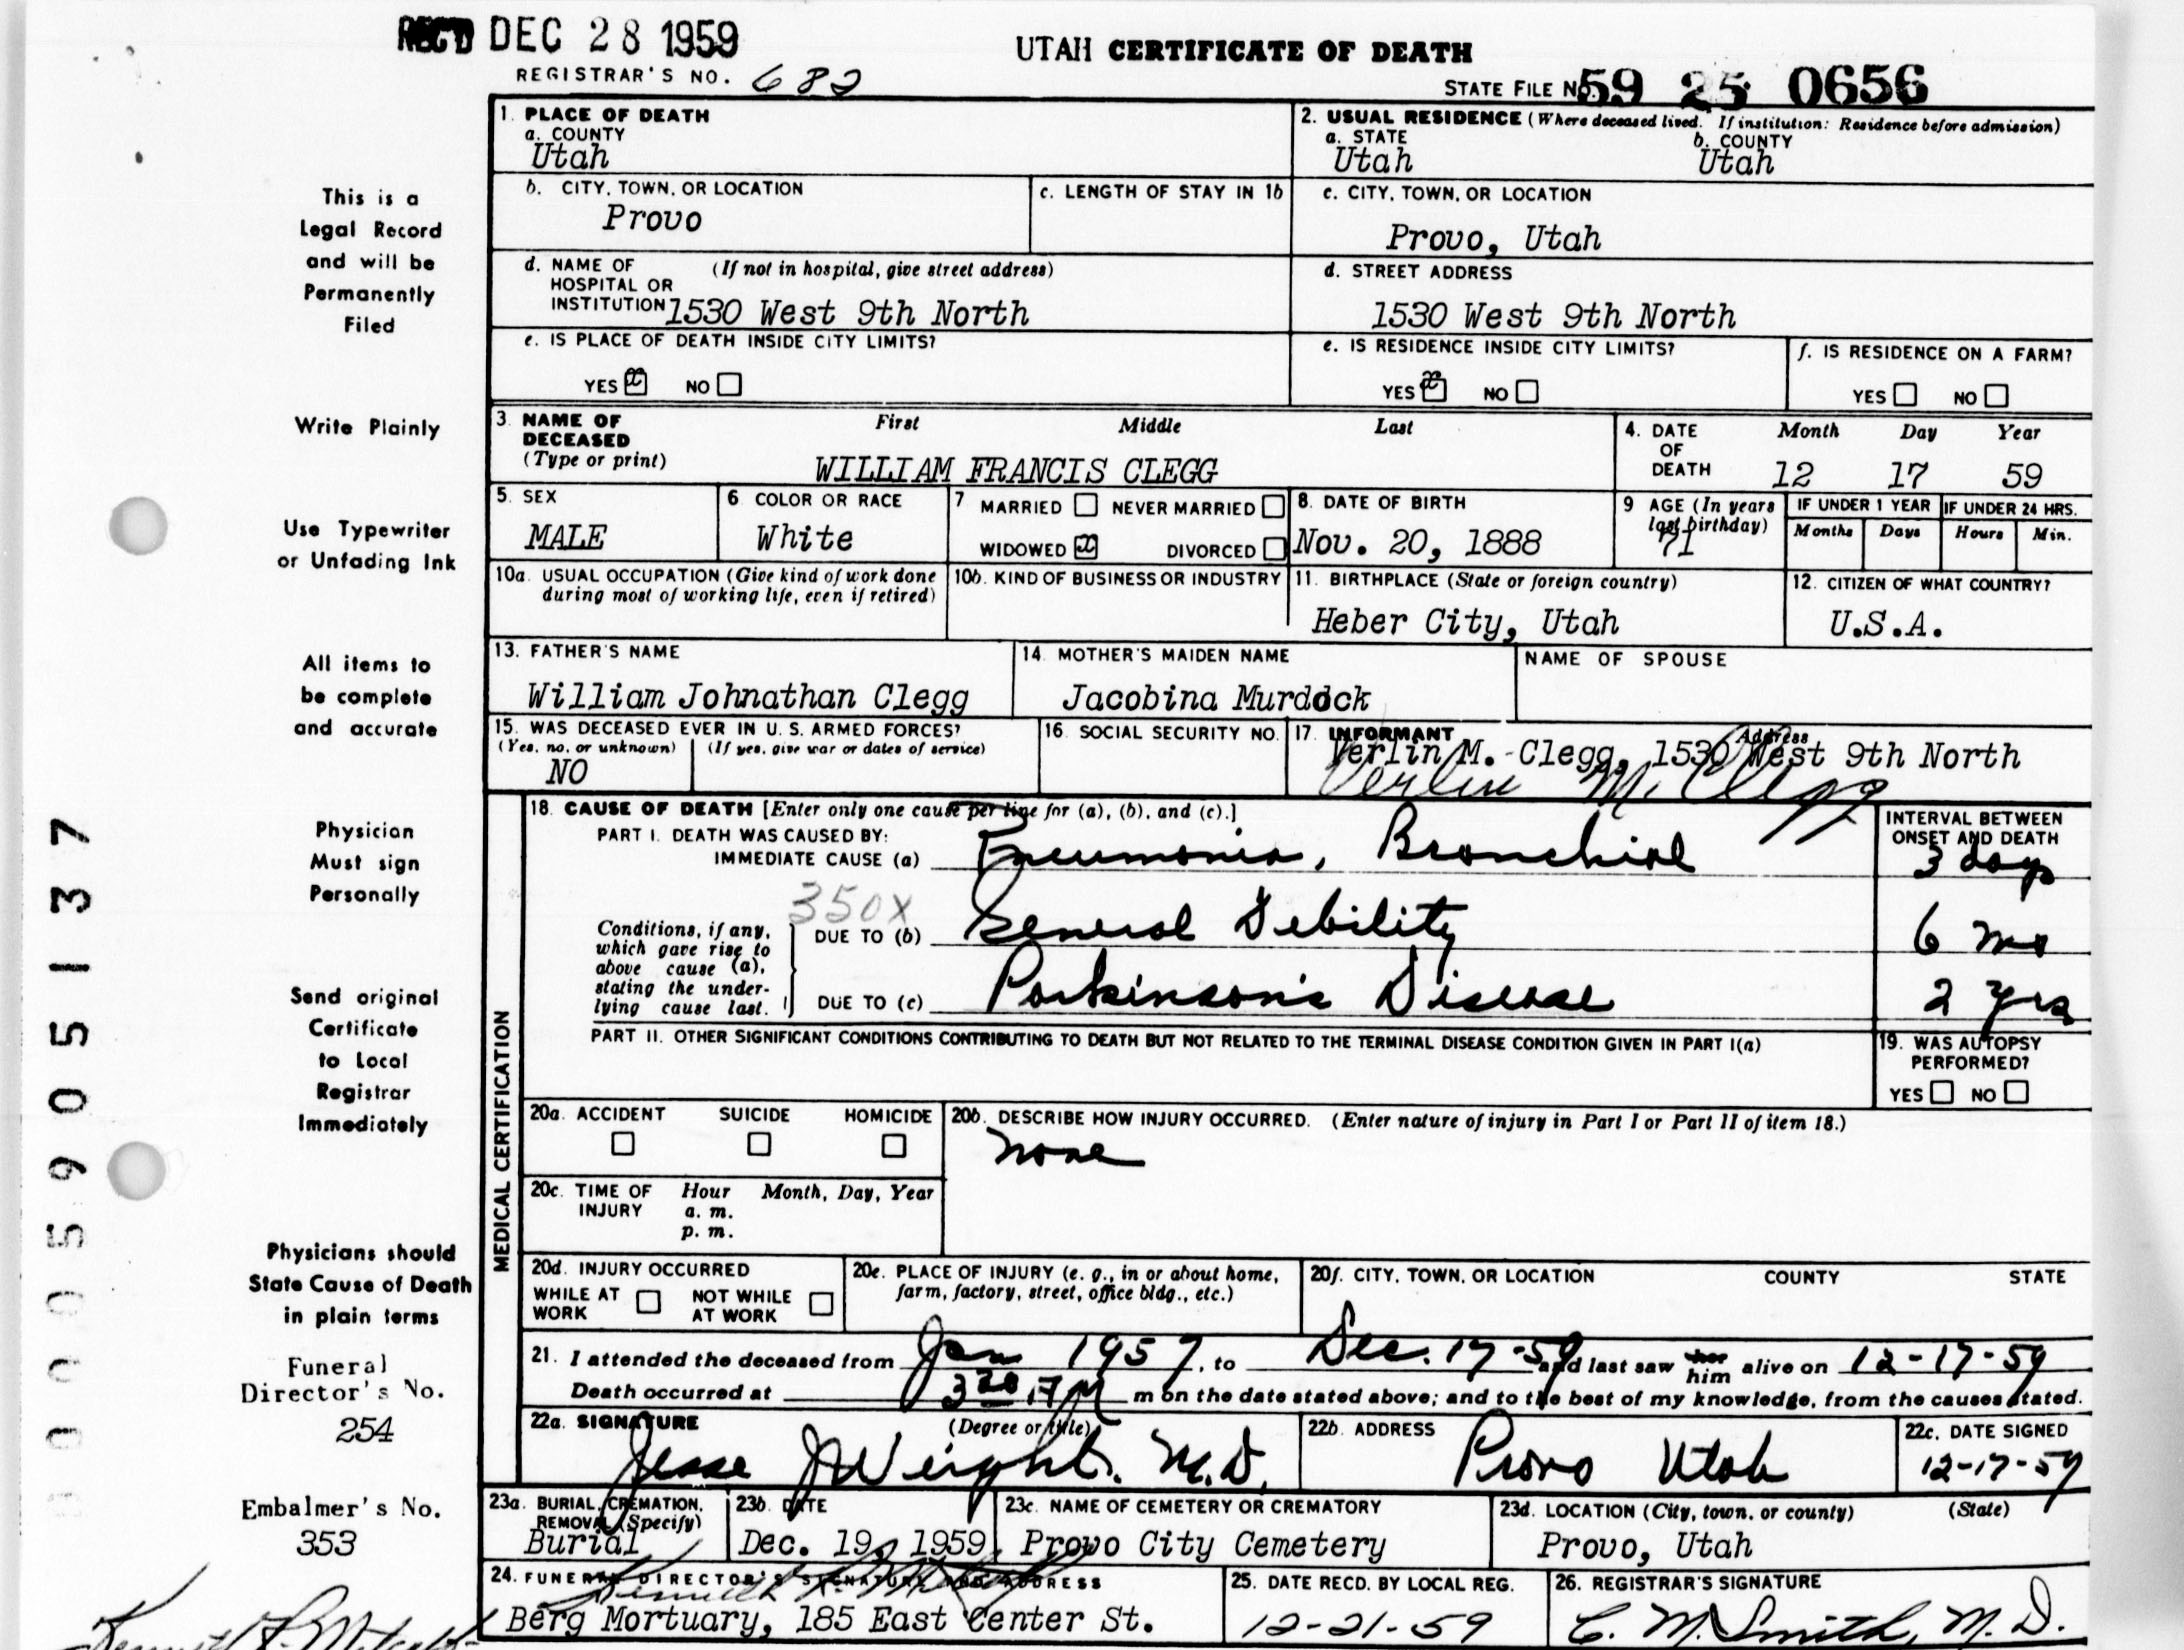 REC'D DEC 28 1959
UTAH CERTIFICATE OF DEATH
REGISTRAR'S NO. 682
STATE FILE NO. 59 25 0656
1. PLACE OF DEATH
a. COUNTY
Utah
2. USUAL RESIDENCE (Where deceased lived. If institution: Residence before admission)
a. STATE b. COUNTY
Utah Utah
b. CITY, TOWN, OR LOCATION
Provo
c. LENGTH OF STAY IN 1b
c. CITY, TOWN, OR LOCATION
Provo, Utah
d. NAME OF (If not in hospital, give street address)
HOSPITAL OR
INSTITUTION 1530 West 9th North
d. STREET ADDRESS
1530 West 9th North
e. IS PLACE OF DEATH INSIDE CITY LIMITS?
YES x NO
e. IS RESIDENCE INSIDE CITY LIMITS?
YES x NO
f. IS RESIDENCE ON A FARM?
YES NO
3. NAME OF DECEASED (Type or print)
First Middle Last
WILLIAM FRANCIS CLEGG
4. DATE OF DEATH
Month Day Year
12 17 59
5. SEX
MALE
6. COLOR OR RACE
White
7 MARRIED NEVER MARRIED
WIDOWED x DIVORCED
8. DATE OF BIRTH
Nov. 20, 1888
9 AGE (In years last birthday)
71
IF UNDER 1 YEAR
Months Days
IF UNDER 24 HRS.
Hours Min.
10a. USUAL OCCUPATION (Give kind of work done
during most of working life, even if retired)
10b. KIND OF BUSINESS OR INDUSTRY
11. BIRTHPLACE (State or foreign country)
Heber City, Utah
12. CITIZEN OF WHAT COUNTRY?
U.S.A.
13. FATHER'S NAME
William Johnathan Clegg
14. MOTHER'S MAIDEN NAME
Jacobina Murdock
NAME OF SPOUSE
15. WAS DECEASED EVER IN U. S. ARMED FORCES?
(Yes, no, or unknown) (If yes, give war or dates of service)
NO
16. SOCIAL SECURITY NO.
17. INFORMANT Address
Verlin M. Clegg, 1530 West 9th North
Verlin M. Clegg
MEDICAL CERTIFICATION
18. CAUSE OF DEATH [Enter only one cause per line for (a), (b), and (c).]
PART I. DEATH WAS CAUSED BY:
IMMEDIATE CAUSE (a) Pneumonia, Bronchial
INTERVAL BETWEEN
ONSET AND DEATH
3 days
350X
Conditions, if any,
which gave rise to
above cause (a),
stating the under-
lying cause last.
DUE TO (b) General Debility
6 mo
DUE TO (c) Parkinson's Disease
2 yrs
PART II. OTHER SIGNIFICANT CONDITIONS CONTRIBUTING TO DEATH BUT NOT RELATED TO THE TERMINAL DISEASE CONDITION GIVEN IN PART I(a)
19. WAS AUTOPSY
PERFORMED?
YES NO
20a. ACCIDENT SUICIDE HOMICIDE
20b. DESCRIBE HOW INJURY OCCURRED. (Enter nature of injury in Part I or Part II of item 18.)
None
20c. TIME OF INJURY
Hour Month, Day, Year
a. m.
p. m.
20d. INJURY OCCURRED
WHILE AT WORK NOT WHILE AT WORK
20e. PLACE OF INJURY (e. g., in or about home,
farm, factory, street, office bldg., etc.)
20f. CITY, TOWN, OR LOCATION COUNTY STATE
21. I attended the deceased from Jan 1957, to Dec. 17-59 and last saw her him alive on 12-17-59
Death occurred at 3 20 AM m on the date stated above; and to the best of my knowledge, from the causes stated.
22a. SIGNATURE (Degree or title)
Jesse J Weight. M.D.
22b. ADDRESS
Provo Utah
22c. DATE SIGNED
12-17-59
23a. BURIAL, CREMATION,
REMOVAL (Specify)
Burial
23b. DATE
Dec. 19, 1959
23c. NAME OF CEMETERY OR CREMATORY
Provo City Cemetery
23d. LOCATION (City, town, or county) (State)
Provo, Utah
24. FUNERAL DIRECTOR'S SIGNATURE AND ADDRESS
Berg Mortuary, 185 East Center St.
25. DATE RECD. BY LOCAL REG.
12-21-59
26. REGISTRAR'S SIGNATURE
C. M. Smith, M.D.
This is a
Legal Record
and will be
Permanently
Filed
Write Plainly
Use Typewriter
or Unfading Ink
All items to
be complete
and accurate
Physician
Must sign
Personally
Send original
Certificate
to Local
Registrar
Immediately
Physicians should
State Cause of Death
in plain terms
Funeral
Director's No.
254
Embalmer's No.
353